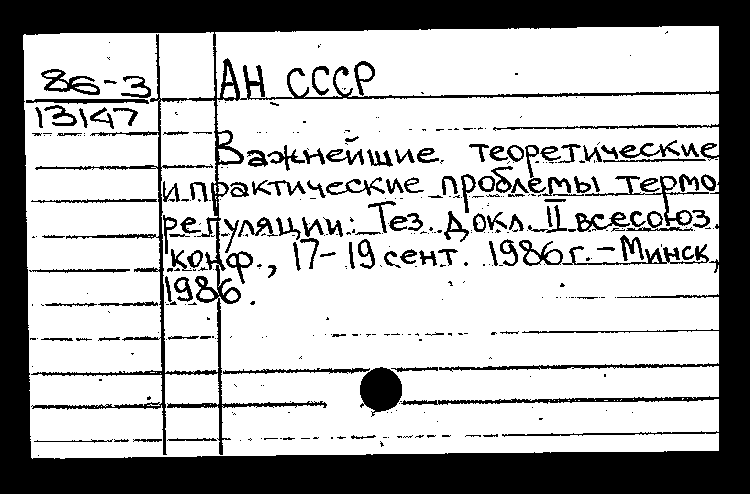 86-3
13147
АН СССР
Важнейшие теоретические
и практические проблемы термо
регуляции: Тез. докл. II всесоюз.
конф., 17-19 сент. 1986 г. - Минск,
1986.